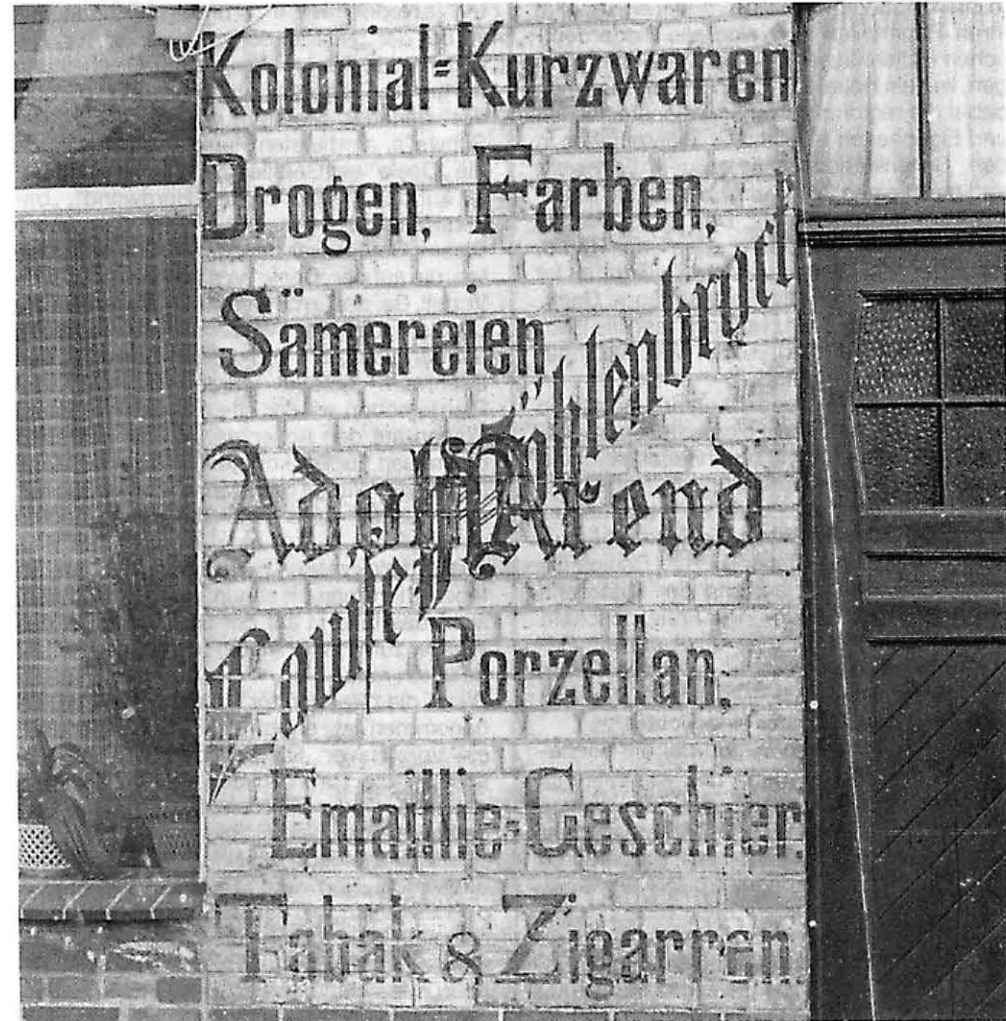 Kolonial=Kurzwaren
Drogen, Farben,
Sämereien
Adolf Arend
Porzellan,
Emaillie=Geschier,
Tabak & Zigarren.